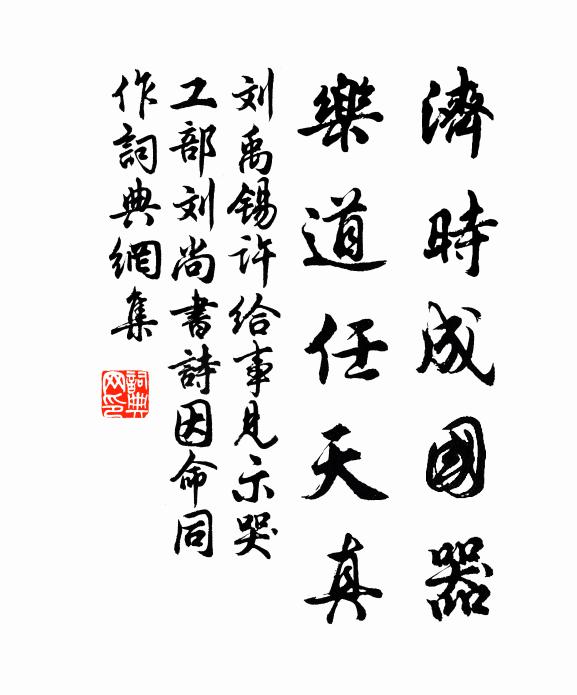 濟時成國器
樂道任天真
刘禹锡许给事見示哭
工部刘尚書詩因命同
作詞典網集
詞典网印